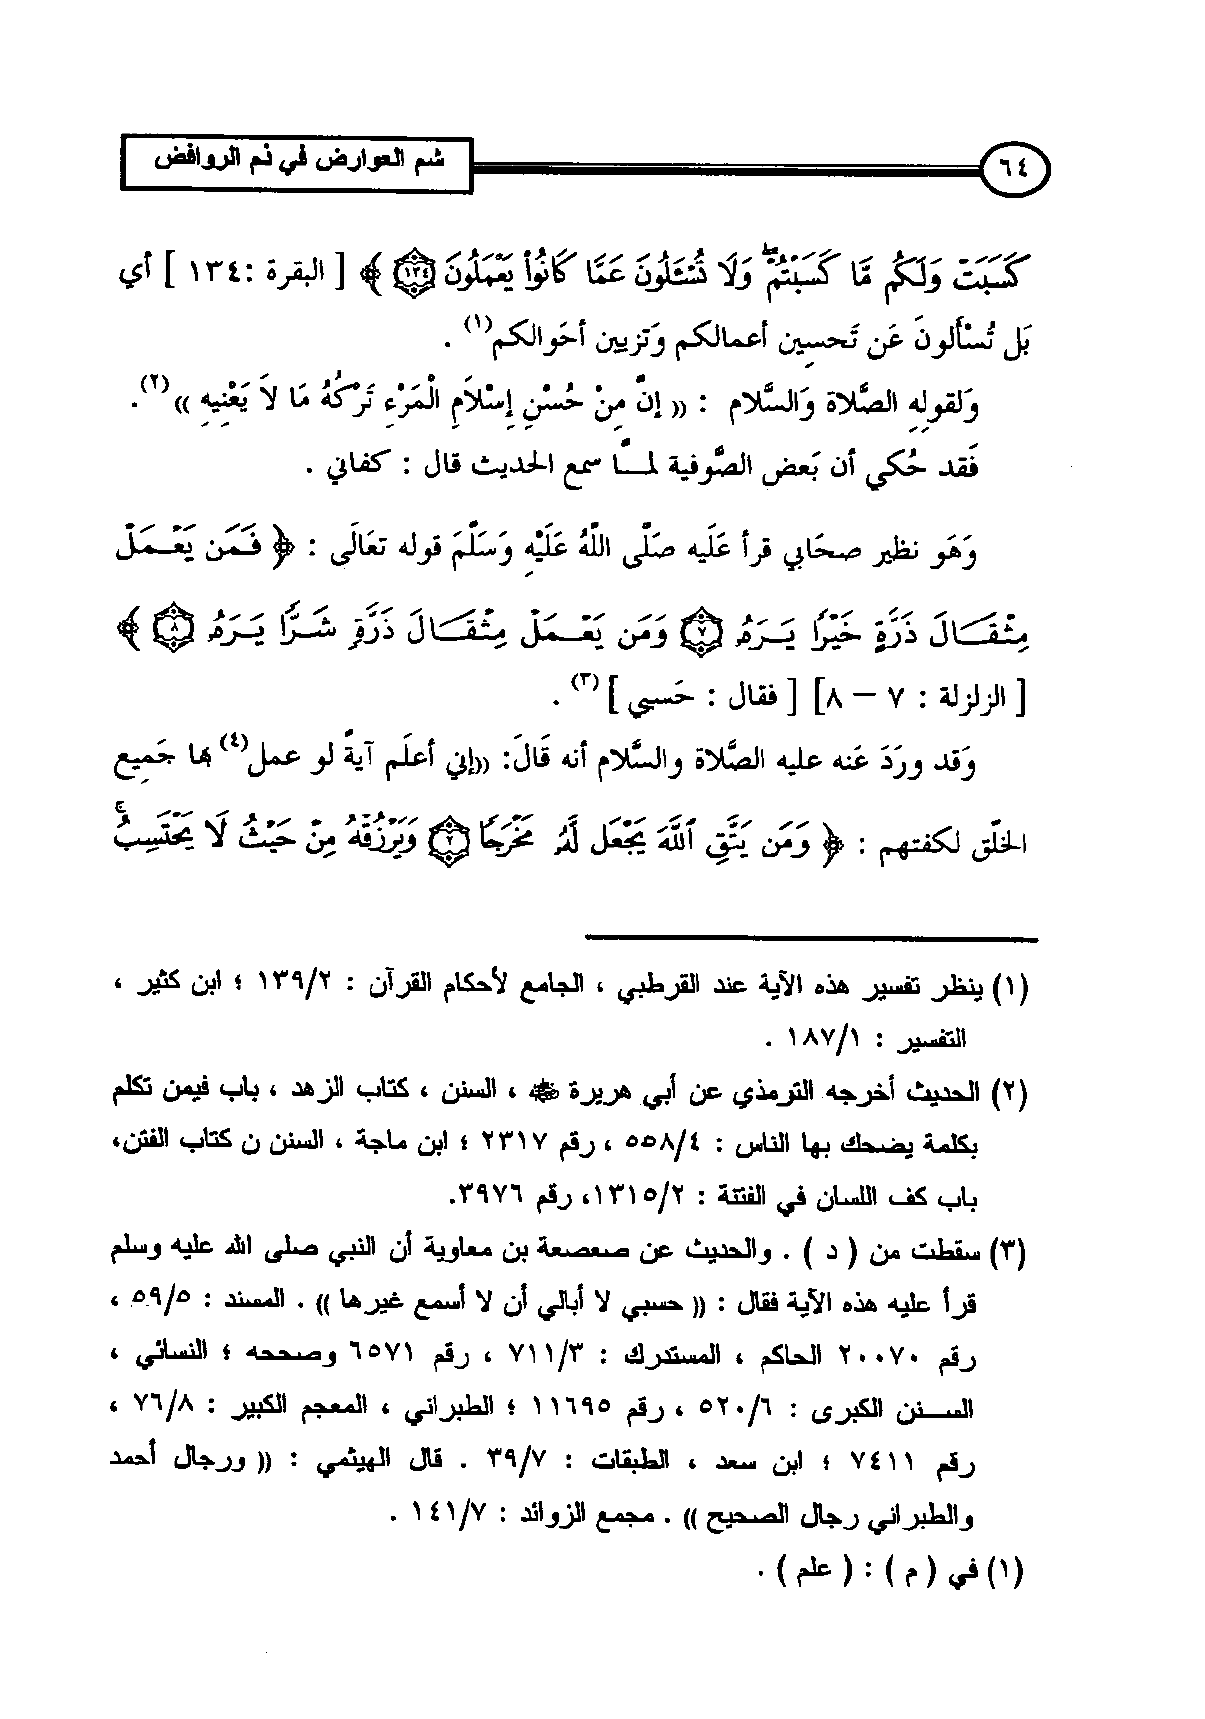 ٦٤
شم العوارض في ذم الروافض
كَسَبَتْ وَلَكُم مَّا كَسَبْتُمْ ۖ وَلَا تُسْـَٔلُونَ عَمَّا كَانُوا۟ يَعْمَلُونَ ١٣٤ ﴾ [ البقرة : ١٣٤ ] أي
بَل تُسْألونَ عَن تَحسِين أعمالكم وَتزيين أحَوالكم(١) .
وَلقولِهِ الصَّلاة وَالسَّلام : (( إنَّ مِنْ حُسْنِ إِسْلَامِ الْمَرْءِ تَرْكُهُ مَا لاَ يَعْنِيهِ ))(٢).
فَقد حُكي أن بَعض الصُّوفية لمــَّا سمع الحديث قال : كفاني .
وَهَو نظير صحَابي قرأ عَلَيه صَلَّى اللَّهُ عَلَيْهِ وَسَلَّمَ قوله تعَالَى : ﴿ فَمَن يَعْمَلْ
مِثْقَالَ ذَرَّةٍ خَيْرًا يَرَهُۥ ٧ وَمَن يَعْمَلْ مِثْقَالَ ذَرَّةٍ شَرًّا يَرَهُۥ ٨ ﴾
[ الزلزلة : ٧ – ٨] [ فقال : حَسبي ](٣) .
وَقد وردَ عَنه عليه الصَّلاة والسَّلام أنه قَالَ: ((إني أعلَم آيةً لو عمل(٤) بها جَميع
الخلَّق لكفتهم : ﴿ وَمَن يَتَّقِ ٱللَّهَ يَجْعَل لَّهُۥ مَخْرَجًا ٢ وَيَرْزُقْهُ مِنْ حَيْثُ لَا يَحْتَسِبُ ۚ
(١) ينظر تفسير هذه الآية عند القرطبي ، الجامع لأحكام القرآن : ١٣٩/٢ ؛ ابن كثير ،
التفسير : ١٨٧/١ .
(٢) الحديث أخرجه الترمذي عن أبي هريرة ﷺ ، السنن ، كتاب الزهد ، باب فيمن تكلم
بكلمة يضحك بها الناس : ٥٥٨/٤ ، رقم ٢٣١٧ ؛ ابن ماجة ، السنن ن كتاب الفتن،
باب كف اللسان في الفتنة : ١٣١٥/٢، رقم ٣٩٧٦.
(٣) سقطت من ( د ) . والحديث عن صعصعة بن معاوية أن النبي صلى الله عليه وسلم
قرأ عليه هذه الآية فقال : (( حسبي لا أبالي أن لا أسمع غيرها )) . المسند : ٥٩/٥ ،
رقم ٢٠٠٧٠ الحاكم ، المستدرك : ٧١١/٣ ، رقم ٦٥٧١ وصححه ؛ النسائي ،
الســنن الكبرى : ٥٢٠/٦ ، رقم ١١٦٩٥ ؛ الطبراني ، المعجم الكبير : ٧٦/٨ ،
رقم ٧٤١١ ؛ ابن سعد ، الطبقات : ٣٩/٧ . قال الهيثمي : (( ورجال أحمد
والطبراني رجال الصحيح )) . مجمع الزوائد : ١٤١/٧ .
(١) في ( م ) : ( علم ) .